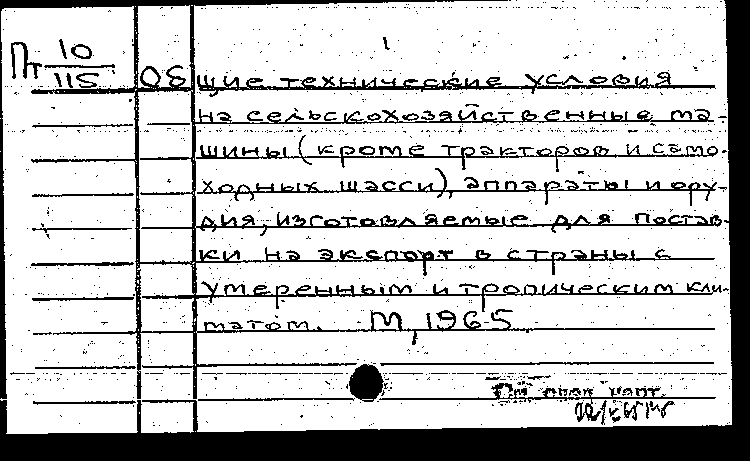 1
Пт 10/115 Общие технические условия
на сельскохозяйственные ма-
шины (кроме тракторов и само-
ходных шасси), аппараты и ору-
дия, изготовляемые для постав-
ки на экспорт в страны с
умеренным и тропическим кли-
матом. М, 1965.